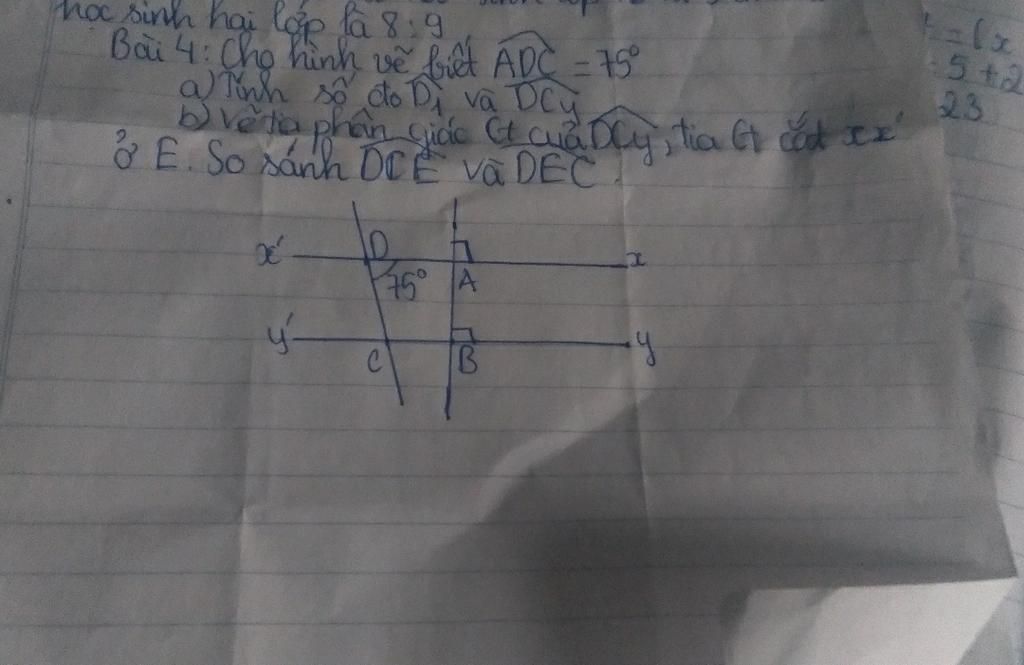 học sinh hai lớp là 8:9
Bài 4: Cho hình vẽ biết ADC = 75°
a) Tính số đo D1 và DCy
b) Vẽ tia phân giác Ct của DCy, tia Ct cắt xx'
ở E. So sánh DCE và DEC.
= (x
5 + 2
23
x' D A x
75°
y' C B y